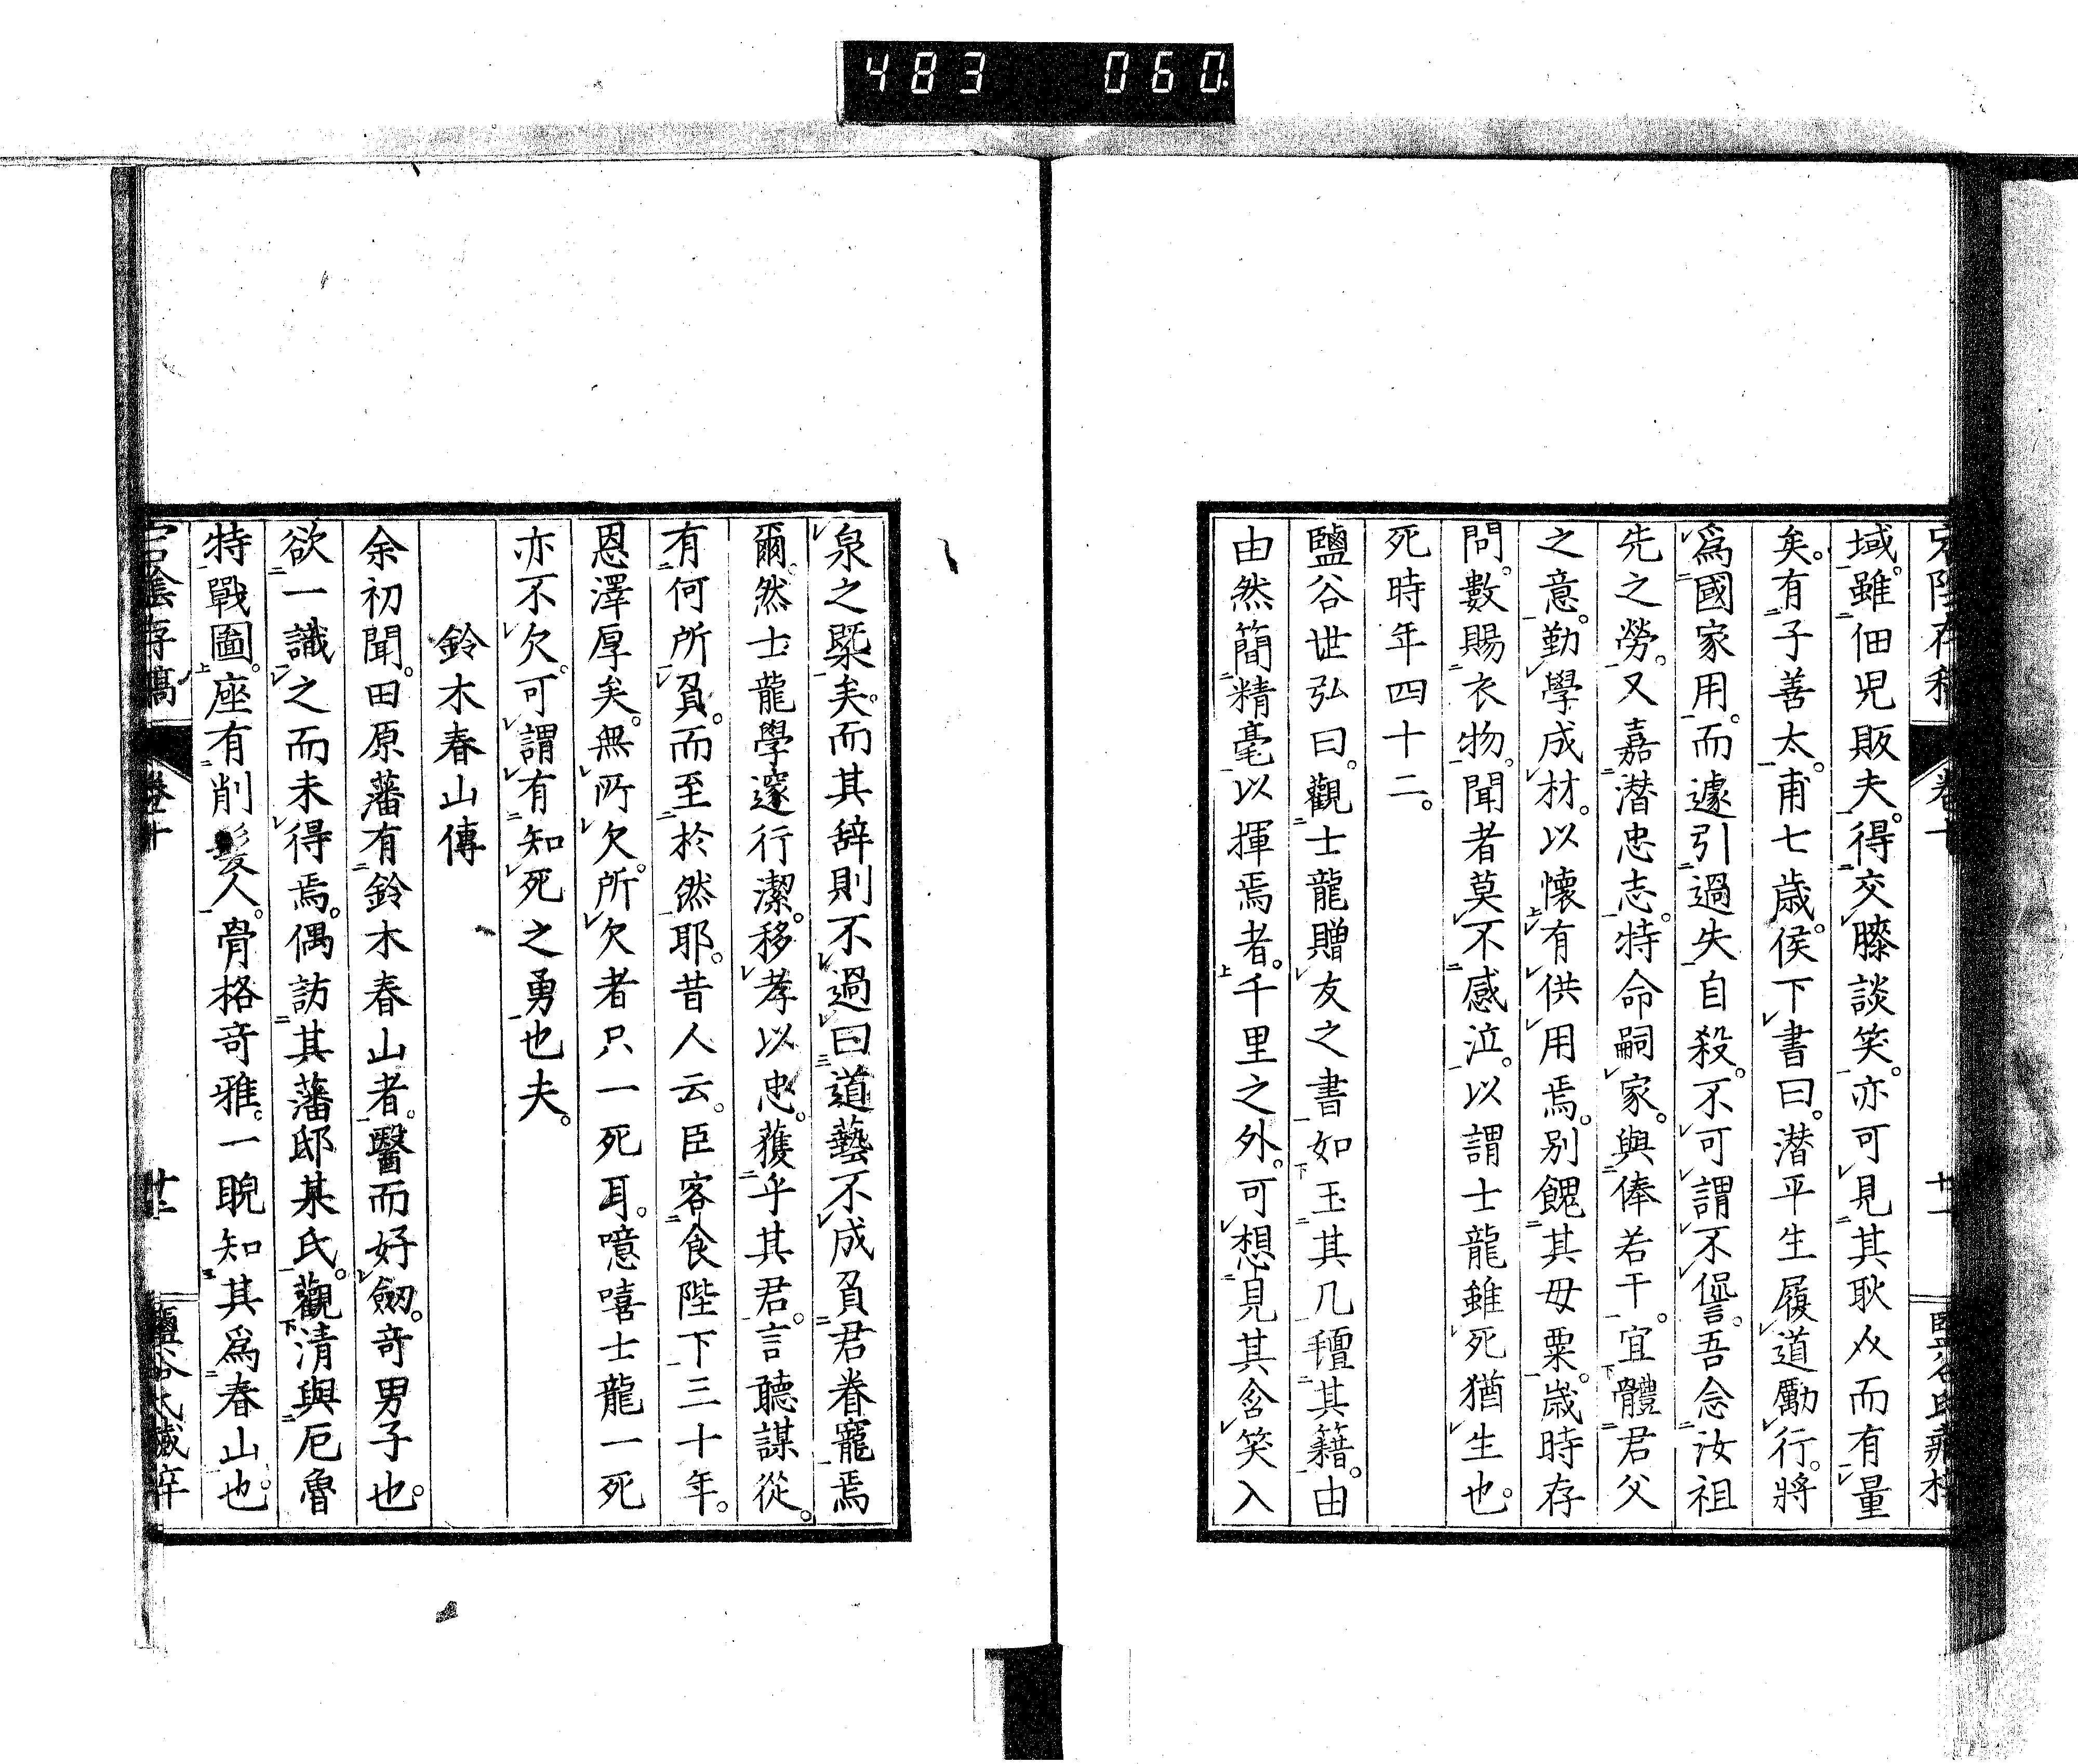 483 060
域。雖佃児販夫。得交膝談笑。亦可見其耿々而有量
矣。有子善太。甫七歳。侯下書曰。潜平生履道勵行。將
爲國家用。而遽引過失自殺。不可謂不愆。吾念汝祖
先之勞。又嘉潜忠志。特命嗣家。與俸若干。宜體君父
之意。勤學成材。以懐有供用焉。別餽其母粟。歳時存
問。數賜衣物。聞者莫不感泣。以謂士龍雖死猶生也。
死時年四十二。
鹽谷世弘曰。觀士龍贈友之書。如玉其几。種其籍。由
由然簡精毫以揮焉者。千里之外。可想見其含笑入
泉之槩矣。而其辞則不過曰道藝不成負君眷寵焉
爾。然士龍學邃行潔。移孝以忠。獲乎其君。言聽謀從。
有何所負。而至於然耶。昔人云。臣客食陛下三十年。
恩澤厚矣。無所欠。所欠者只一死耳。噫嘻士龍一死
亦不欠。可謂有知死之勇也夫。
鈴木春山傳
余初聞。田原藩有鈴木春山者。醫而好劒。奇男子也。
欲一識之而未得焉。偶訪其藩邸某氏。觀清與厄魯
特戰圖。座有削髮人。骨格奇雅。一睨知其爲春山也。
宕陰存稿 卷十 廿二 鹽谷氏藏梓